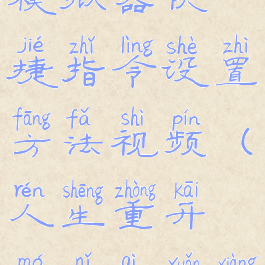 jié zhǐ lìng shè zhì
捷指令设置
fāng fǎ shì pín
方法视频（
rén shēng zhòng kāi
人生重开
mó nǐ qì xuǎn xiàng